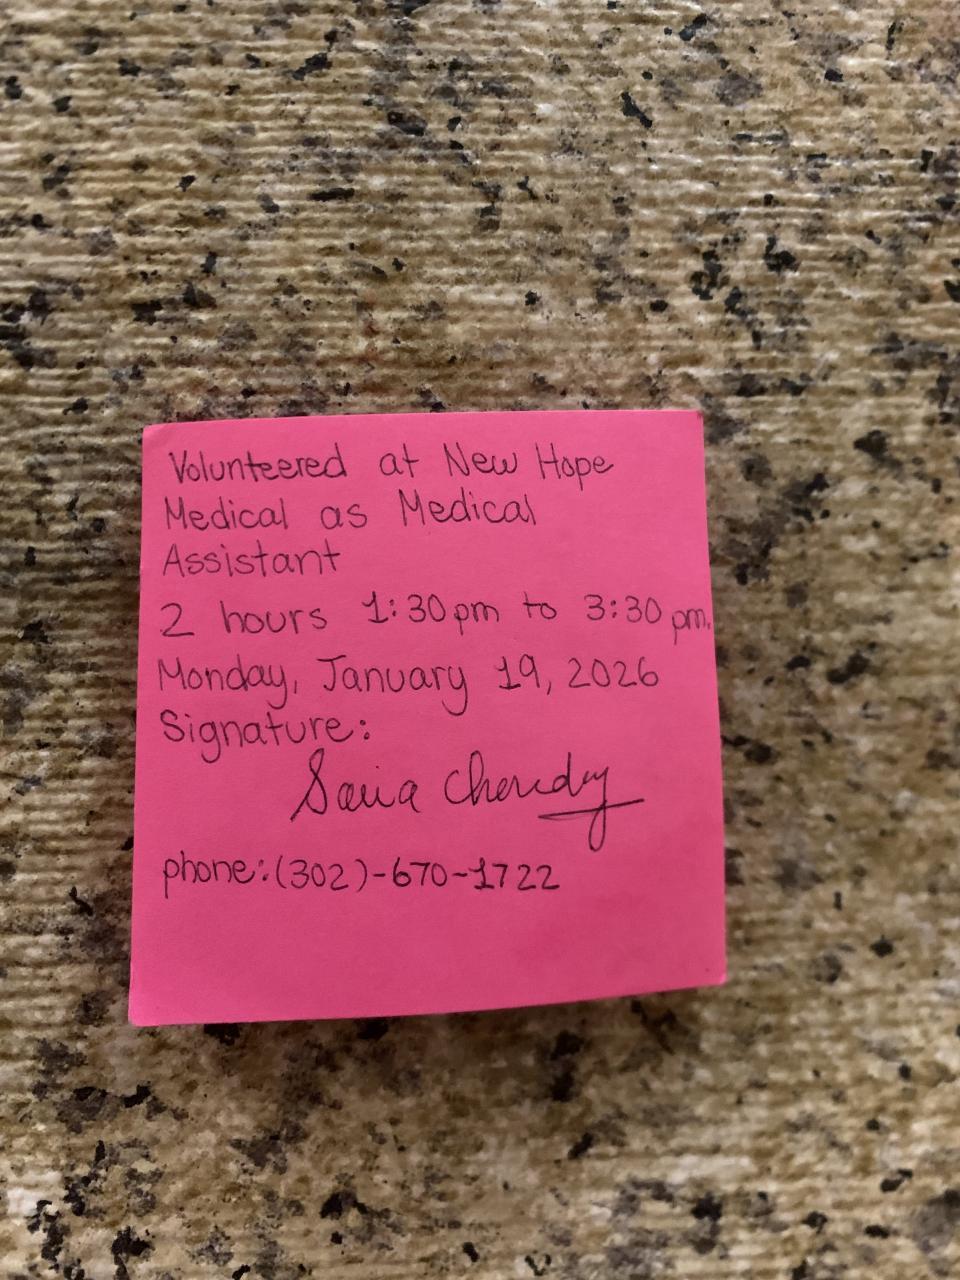 Volunteered at New Hope
Medical as Medical
Assistant
2 hours 1:30pm to 3:30 pm.
Monday, January 19, 2026
Signature:
phone:(302)-670-1722